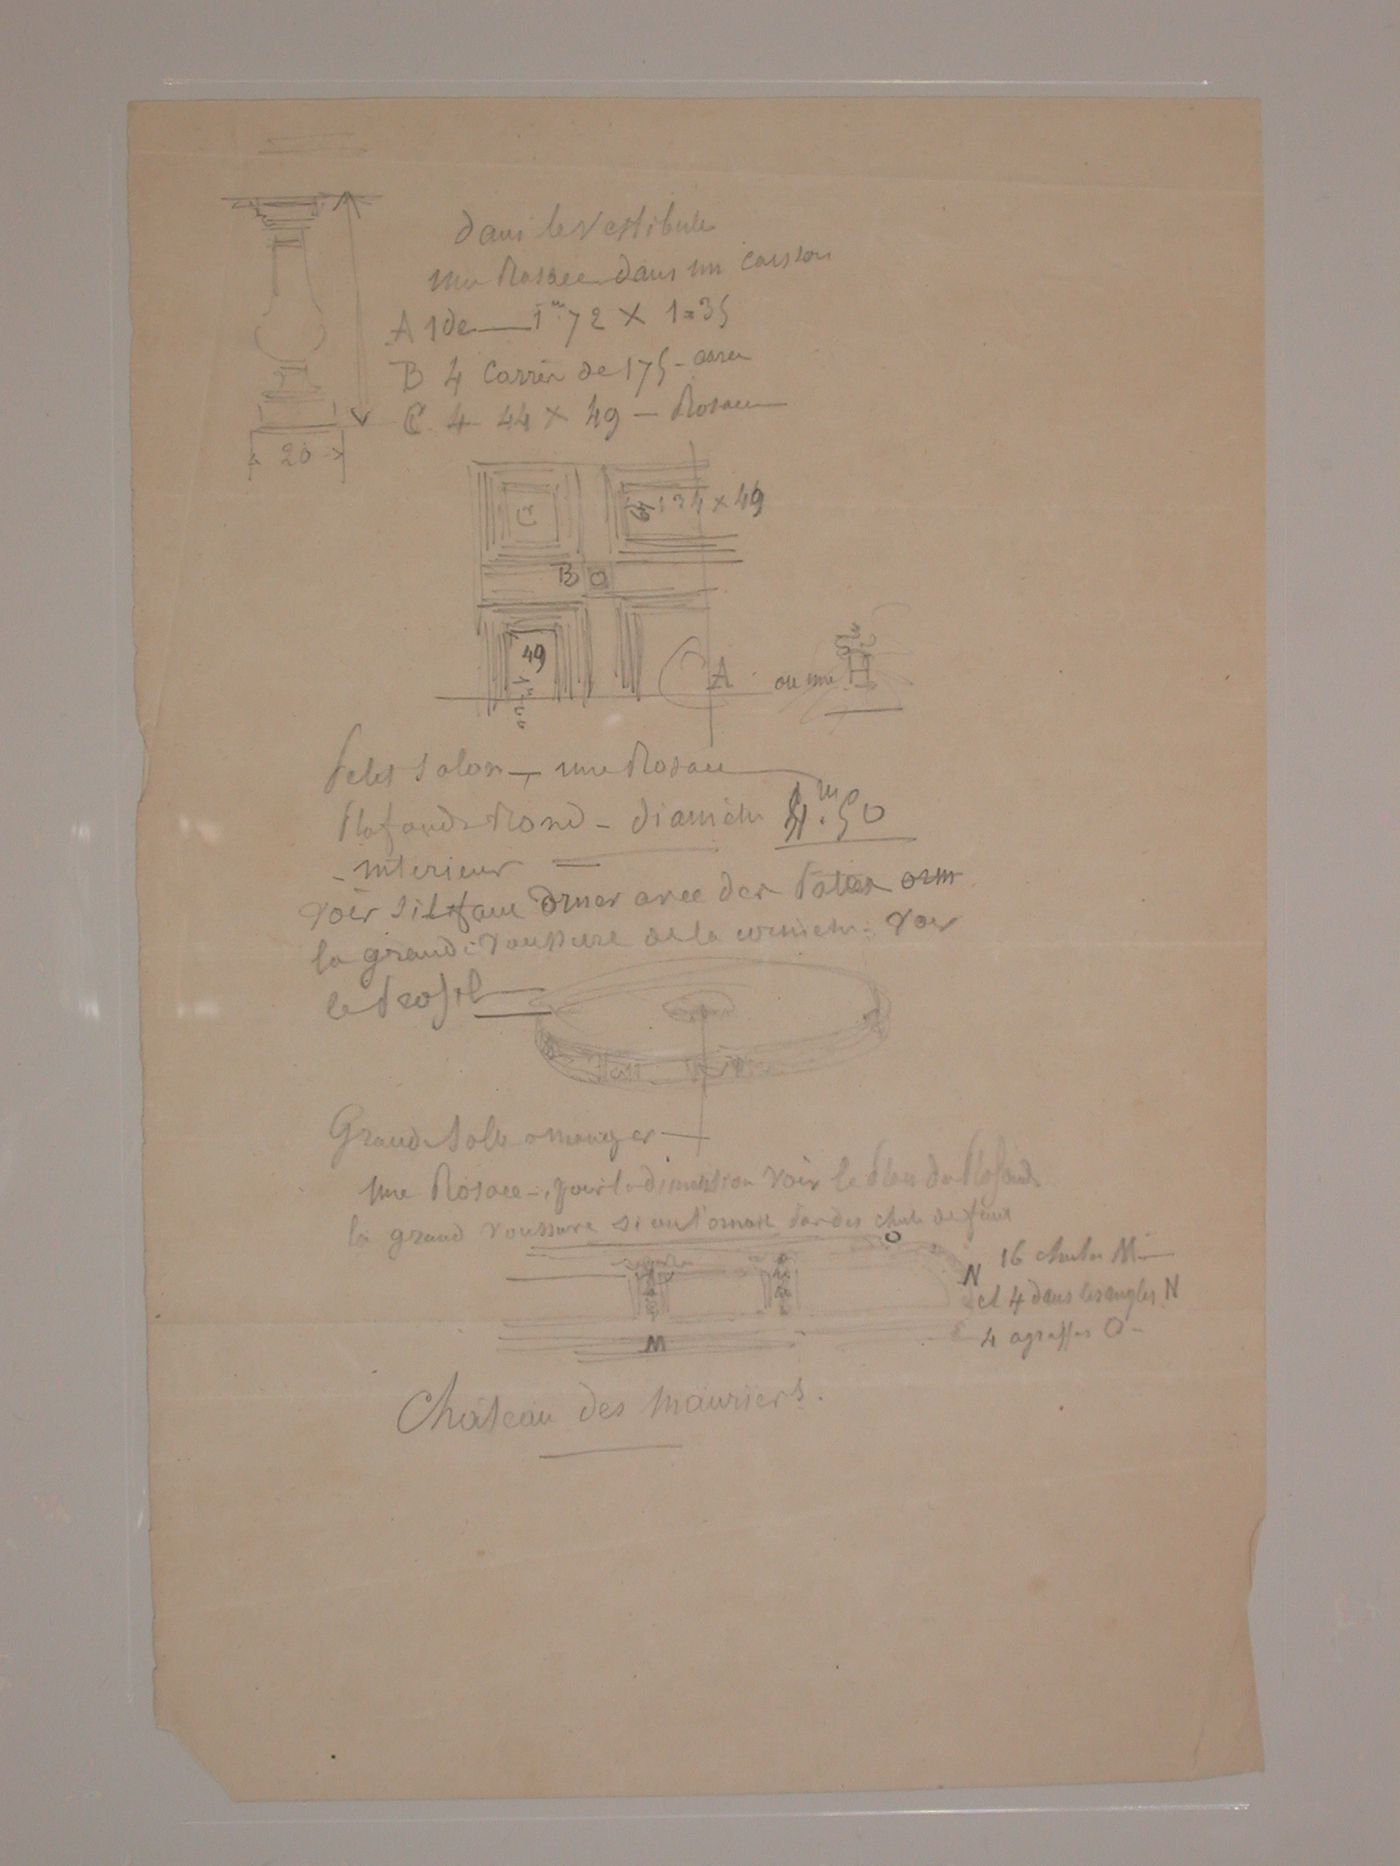 dans le vestibule
une Rosace dans un caisson
A 1 de — 1m72 X 1=35
B 4 Carrés de 175 -
C 4 44 X 49 — Rosace
20
C
134 x 49
B
49
A ou une H
Petit Salon — une Rosace
Plafond Rond - diamètre 4m.50
- interieur
voir sil faut orner avec des
la grande voussure de la corniche. Voir
le Profil
Grande Salle a manger —
une Rosace - pour la dimension voir le Plan du Plafond
la grand voussure si on l'ornait par des
O
N
16 chutes M —
et 4 dans les angles N
4 agraffes O -
M
Château des mauriers.